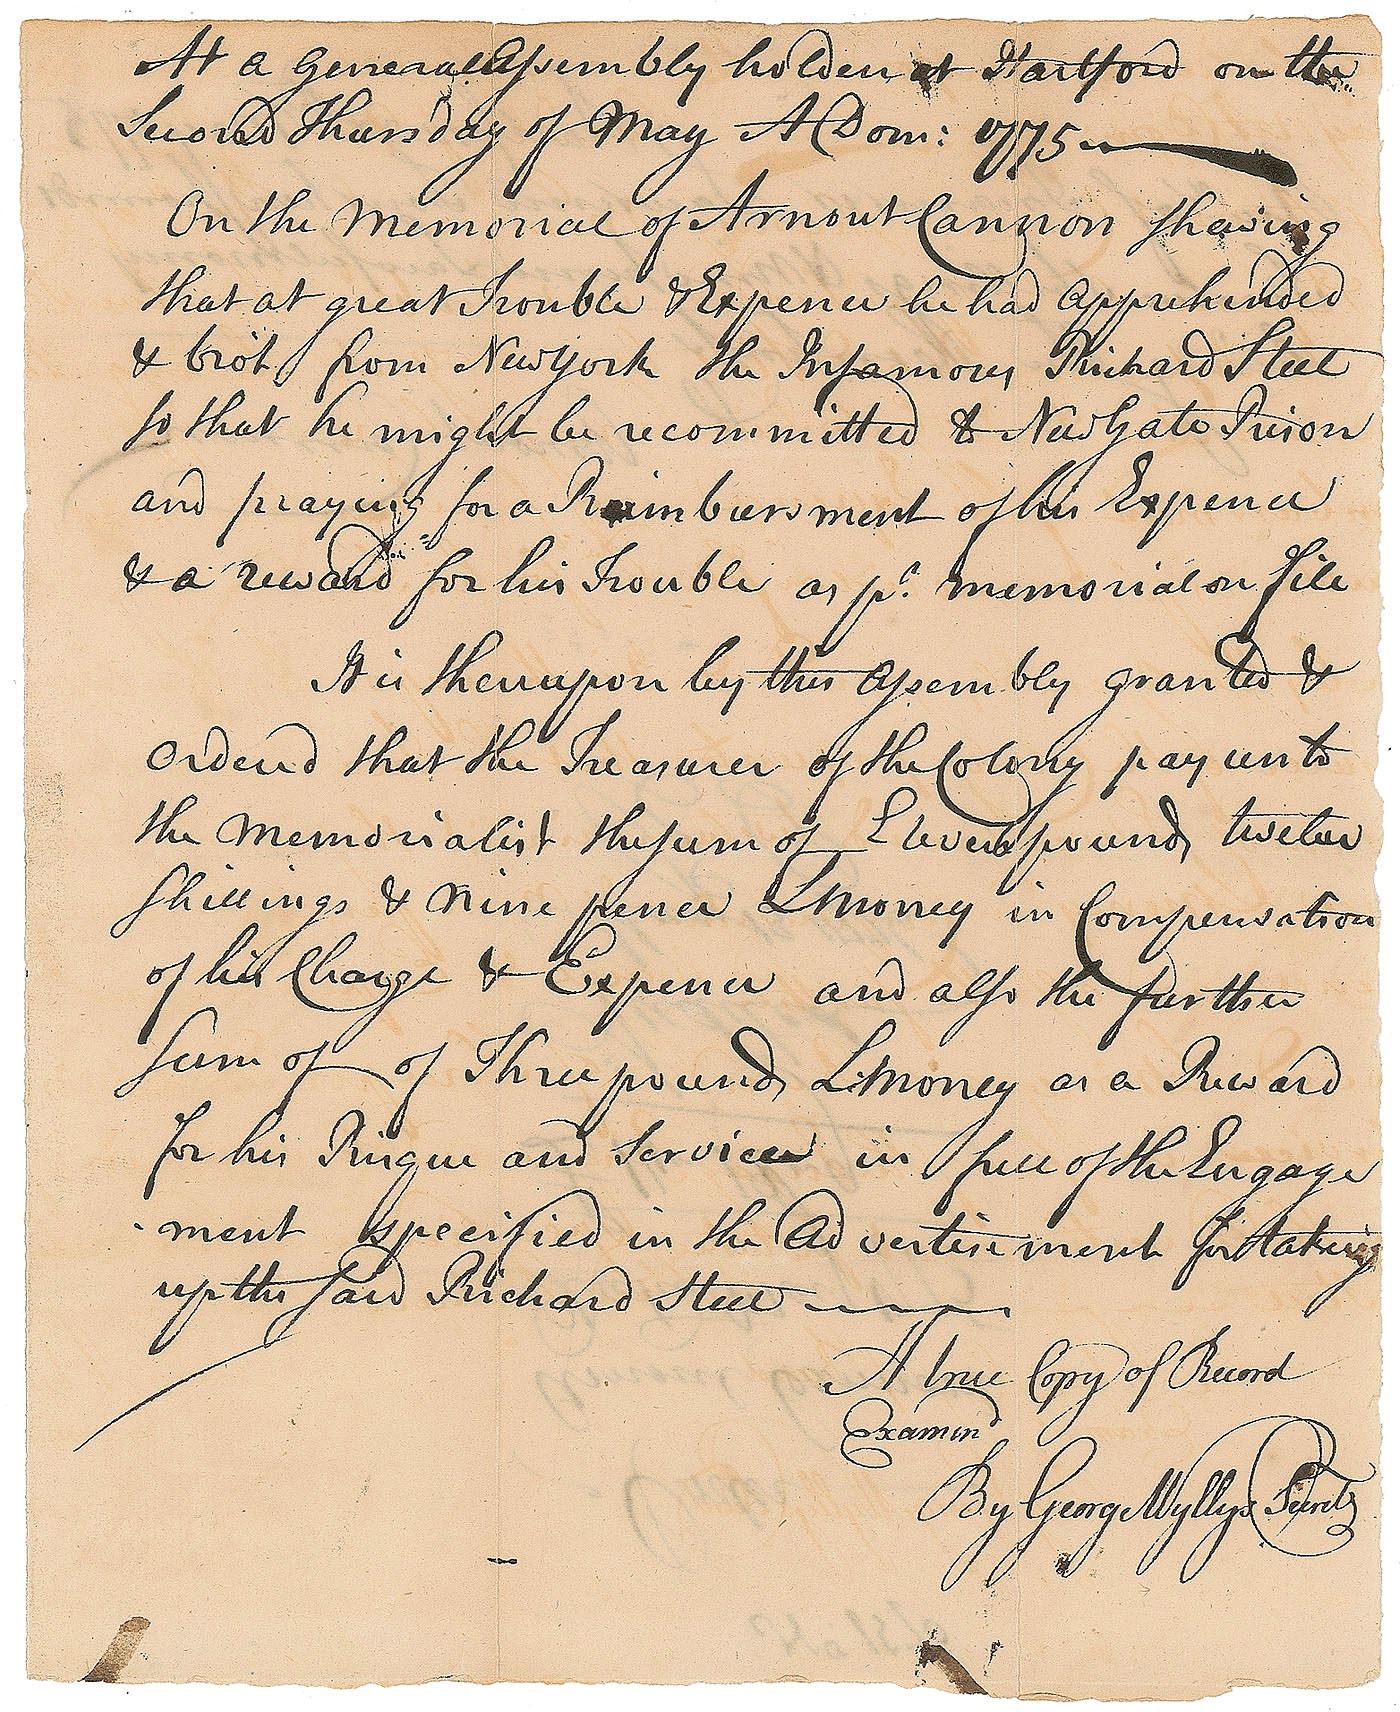 At a General Assembly holden at Hartford on the
Second Thursday of May A Dom: 1775
On the Memorial of Arnout Cannon shewing
that at great Trouble & Expence he had apprehended
& brôt from Newyork the Infamous Richard Steel
so that he might be recommitted to NewGate Prison
and praying for a Reimbursment of his Expence
& a reward for his Trouble as pr. memorial on file
It is thereupon by this Assembly granted &
Ordered that the Treasurer of the Colony pay unto
the Memorialist the sum of Eleven pounds twelve
shillings & nine pence LMoney in Compensation
of his Charge & Expence and also the further
sum of of Three pounds L:Money as a Reward
for his Risque and Services in full of the Engage
ment specified in the Advertisement for taking
up the said Richard Steel
A true Copy of Record
Examind
By George Wyllys Secrety